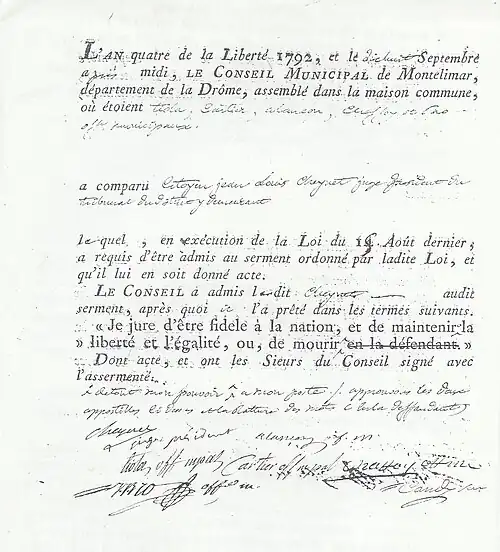 L'AN quatre de la Liberté 1792, et le dixhuit Septembre
après midi, LE CONSEIL MUNICIPAL de Montelimar,
département de la Drôme, assemblé dans la maison commune,
où étoient
off. municipaux.
a comparu Citoyen jean Louis Cheynet juge président du
tribunal du district y demeurant
lequel, en exécution de la Loi du 15 Août dernier;
a requis d'être admis au serment ordonné par ladite Loi, et
qu'il lui en soit donné acte.
LE CONSEIL à admis ledit Cheynet audit
serment, après quoi il l'a prêté dans les termes suivants.
« Je jure d'être fidele à la nation, et de maintenir la
» liberté et l'égalité, ou, de mourir en la défendant. »
Dont acte, et ont les Sieurs du Conseil signé avec
l'assermenté.
de tout mon pouvoir à mon poste approuvons les deux
apostilles et la rature des mots en la deffendant
Cheynet
juge président alançon off. m.
off mpal Cartier off mpal off m
off m.